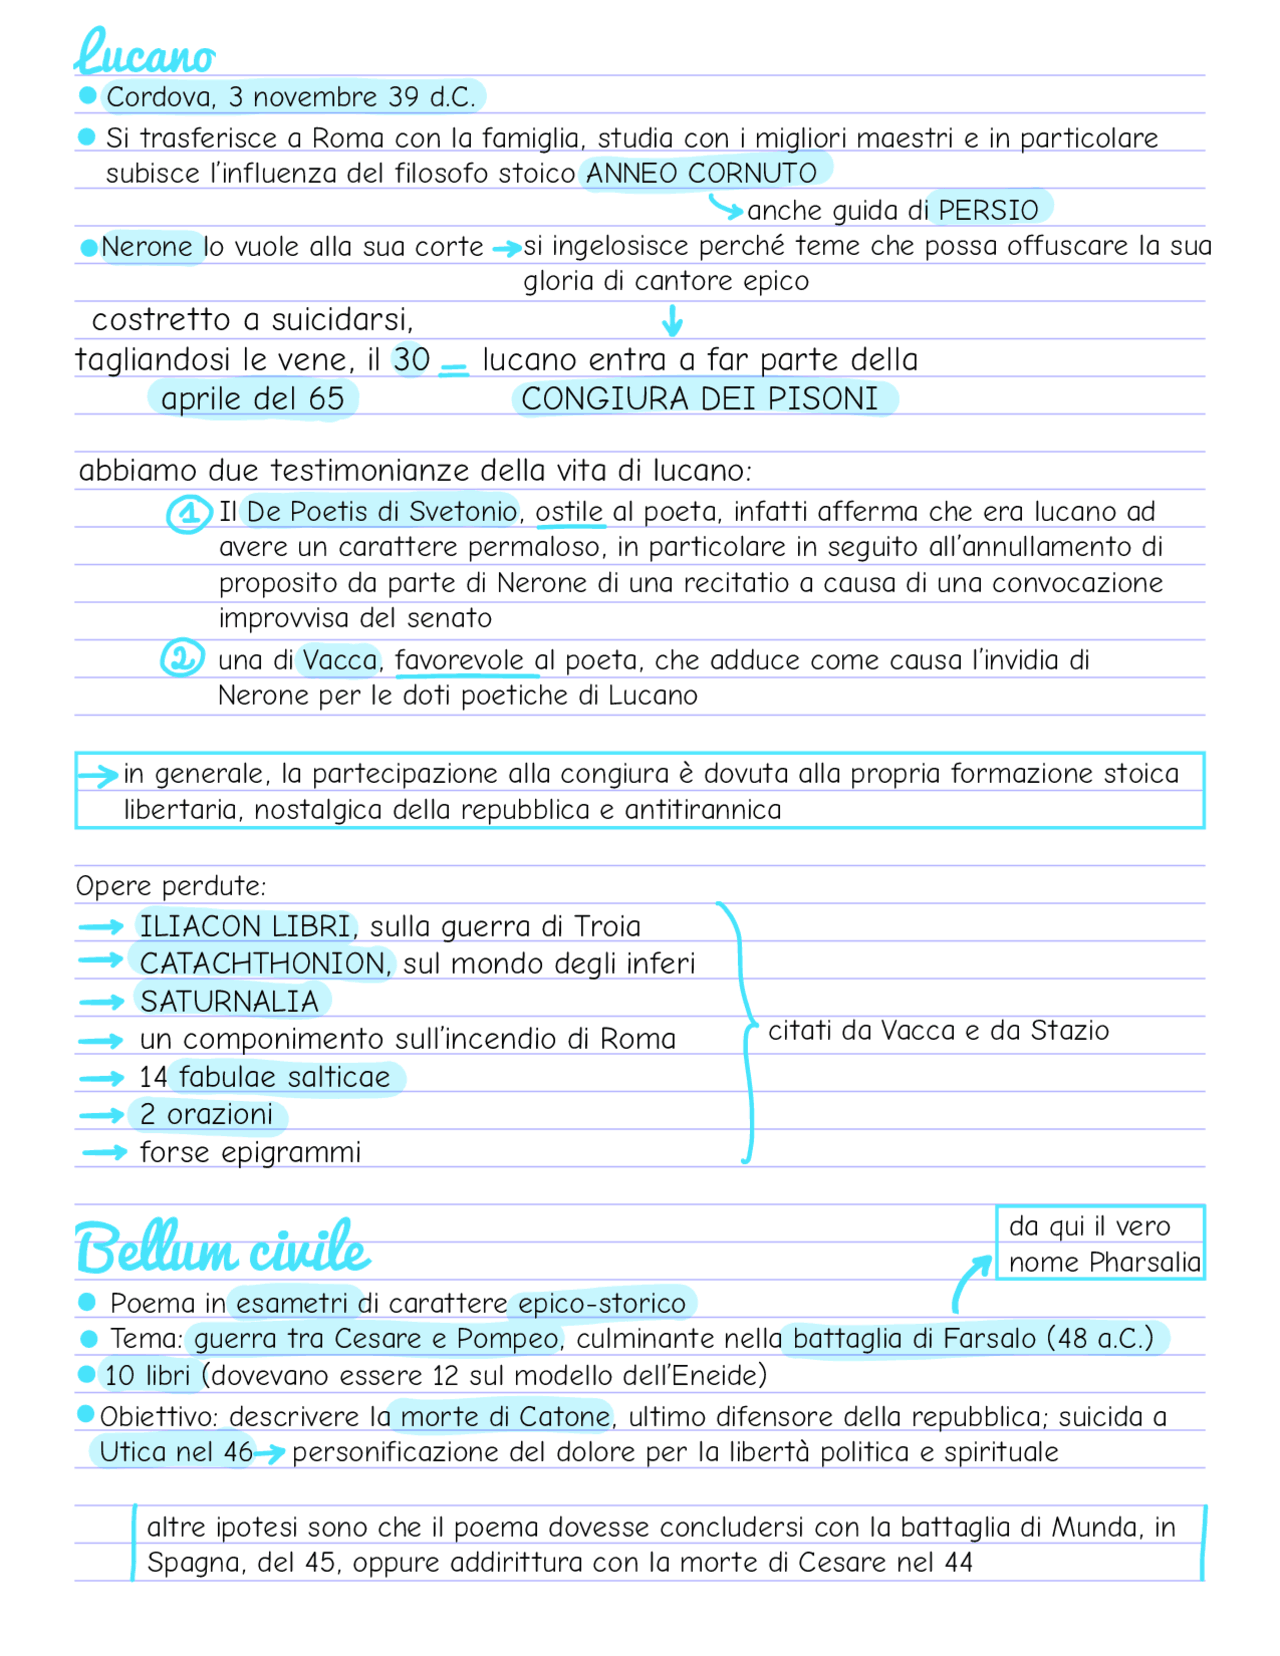 Lucano
Cordova, 3 novembre 39 d.C.
Si trasferisce a Roma con la famiglia, studia con i migliori maestri e in particolare
subisce l'influenza del filosofo stoico ANNEO CORNUTO
anche guida di PERSIO
Nerone lo vuole alla sua corte → si ingelosisce perché teme che possa offuscare la sua
gloria di cantore epico
costretto a suicidarsi,
tagliandosi le vene, il 30 = lucano entra a far parte della
aprile del 65 CONGIURA DEI PISONI
abbiamo due testimonianze della vita di lucano:
1 Il De Poetis di Svetonio, ostile al poeta, infatti afferma che era lucano ad
avere un carattere permaloso, in particolare in seguito all'annullamento di
proposito da parte di Nerone di una recitatio a causa di una convocazione
improvvisa del senato
2 una di Vacca, favorevole al poeta, che adduce come causa l'invidia di
Nerone per le doti poetiche di Lucano
→ in generale, la partecipazione alla congiura è dovuta alla propria formazione stoica
libertaria, nostalgica della repubblica e antitirannica
Opere perdute:
→ ILIACON LIBRI, sulla guerra di Troia
→ CATACHTHONION, sul mondo degli inferi
→ SATURNALIA
citati da Vacca e da Stazio
→ un componimento sull'incendio di Roma
→ 14 fabulae salticae
→ 2 orazioni
→ forse epigrammi
da qui il vero
nome Pharsalia
Bellum civile
Poema in esametri di carattere epico-storico
Tema: guerra tra Cesare e Pompeo, culminante nella battaglia di Farsalo (48 a.C.)
10 libri (dovevano essere 12 sul modello dell'Eneide)
Obiettivo: descrivere la morte di Catone, ultimo difensore della repubblica; suicida a
Utica nel 46 → personificazione del dolore per la libertà politica e spirituale
altre ipotesi sono che il poema dovesse concludersi con la battaglia di Munda, in
Spagna, del 45, oppure addirittura con la morte di Cesare nel 44